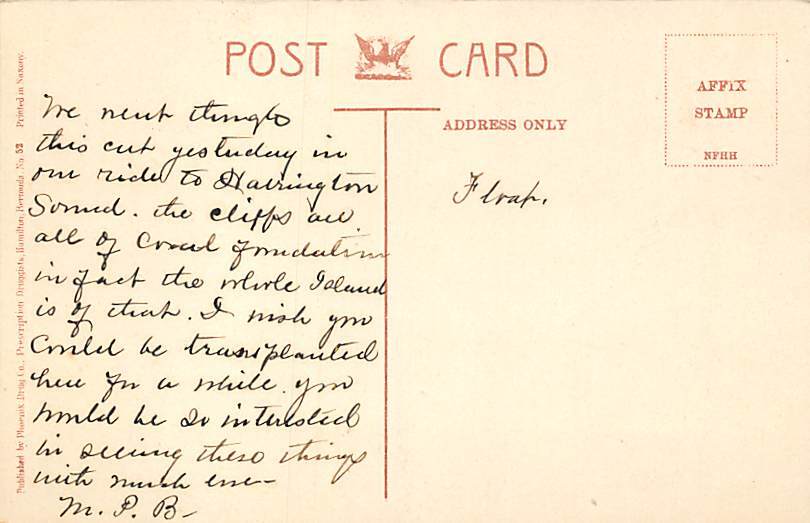 POST CARD
ADDRESS ONLY
AFFIX
STAMP
NFHH
Published by Phoenix Drug Co., Prescription Druggists, Hamilton, Bermuda. No 52 Printed in Saxony.
We went through
this cut yesterday in
our ride to Harrington
Sound. the cliffs are
all of Coral foundation
in fact the whole Island
is of that. I wish you
Could be transplanted
here for a while. you
would be so interested
in seeing these things
with much love-
M. P. B-